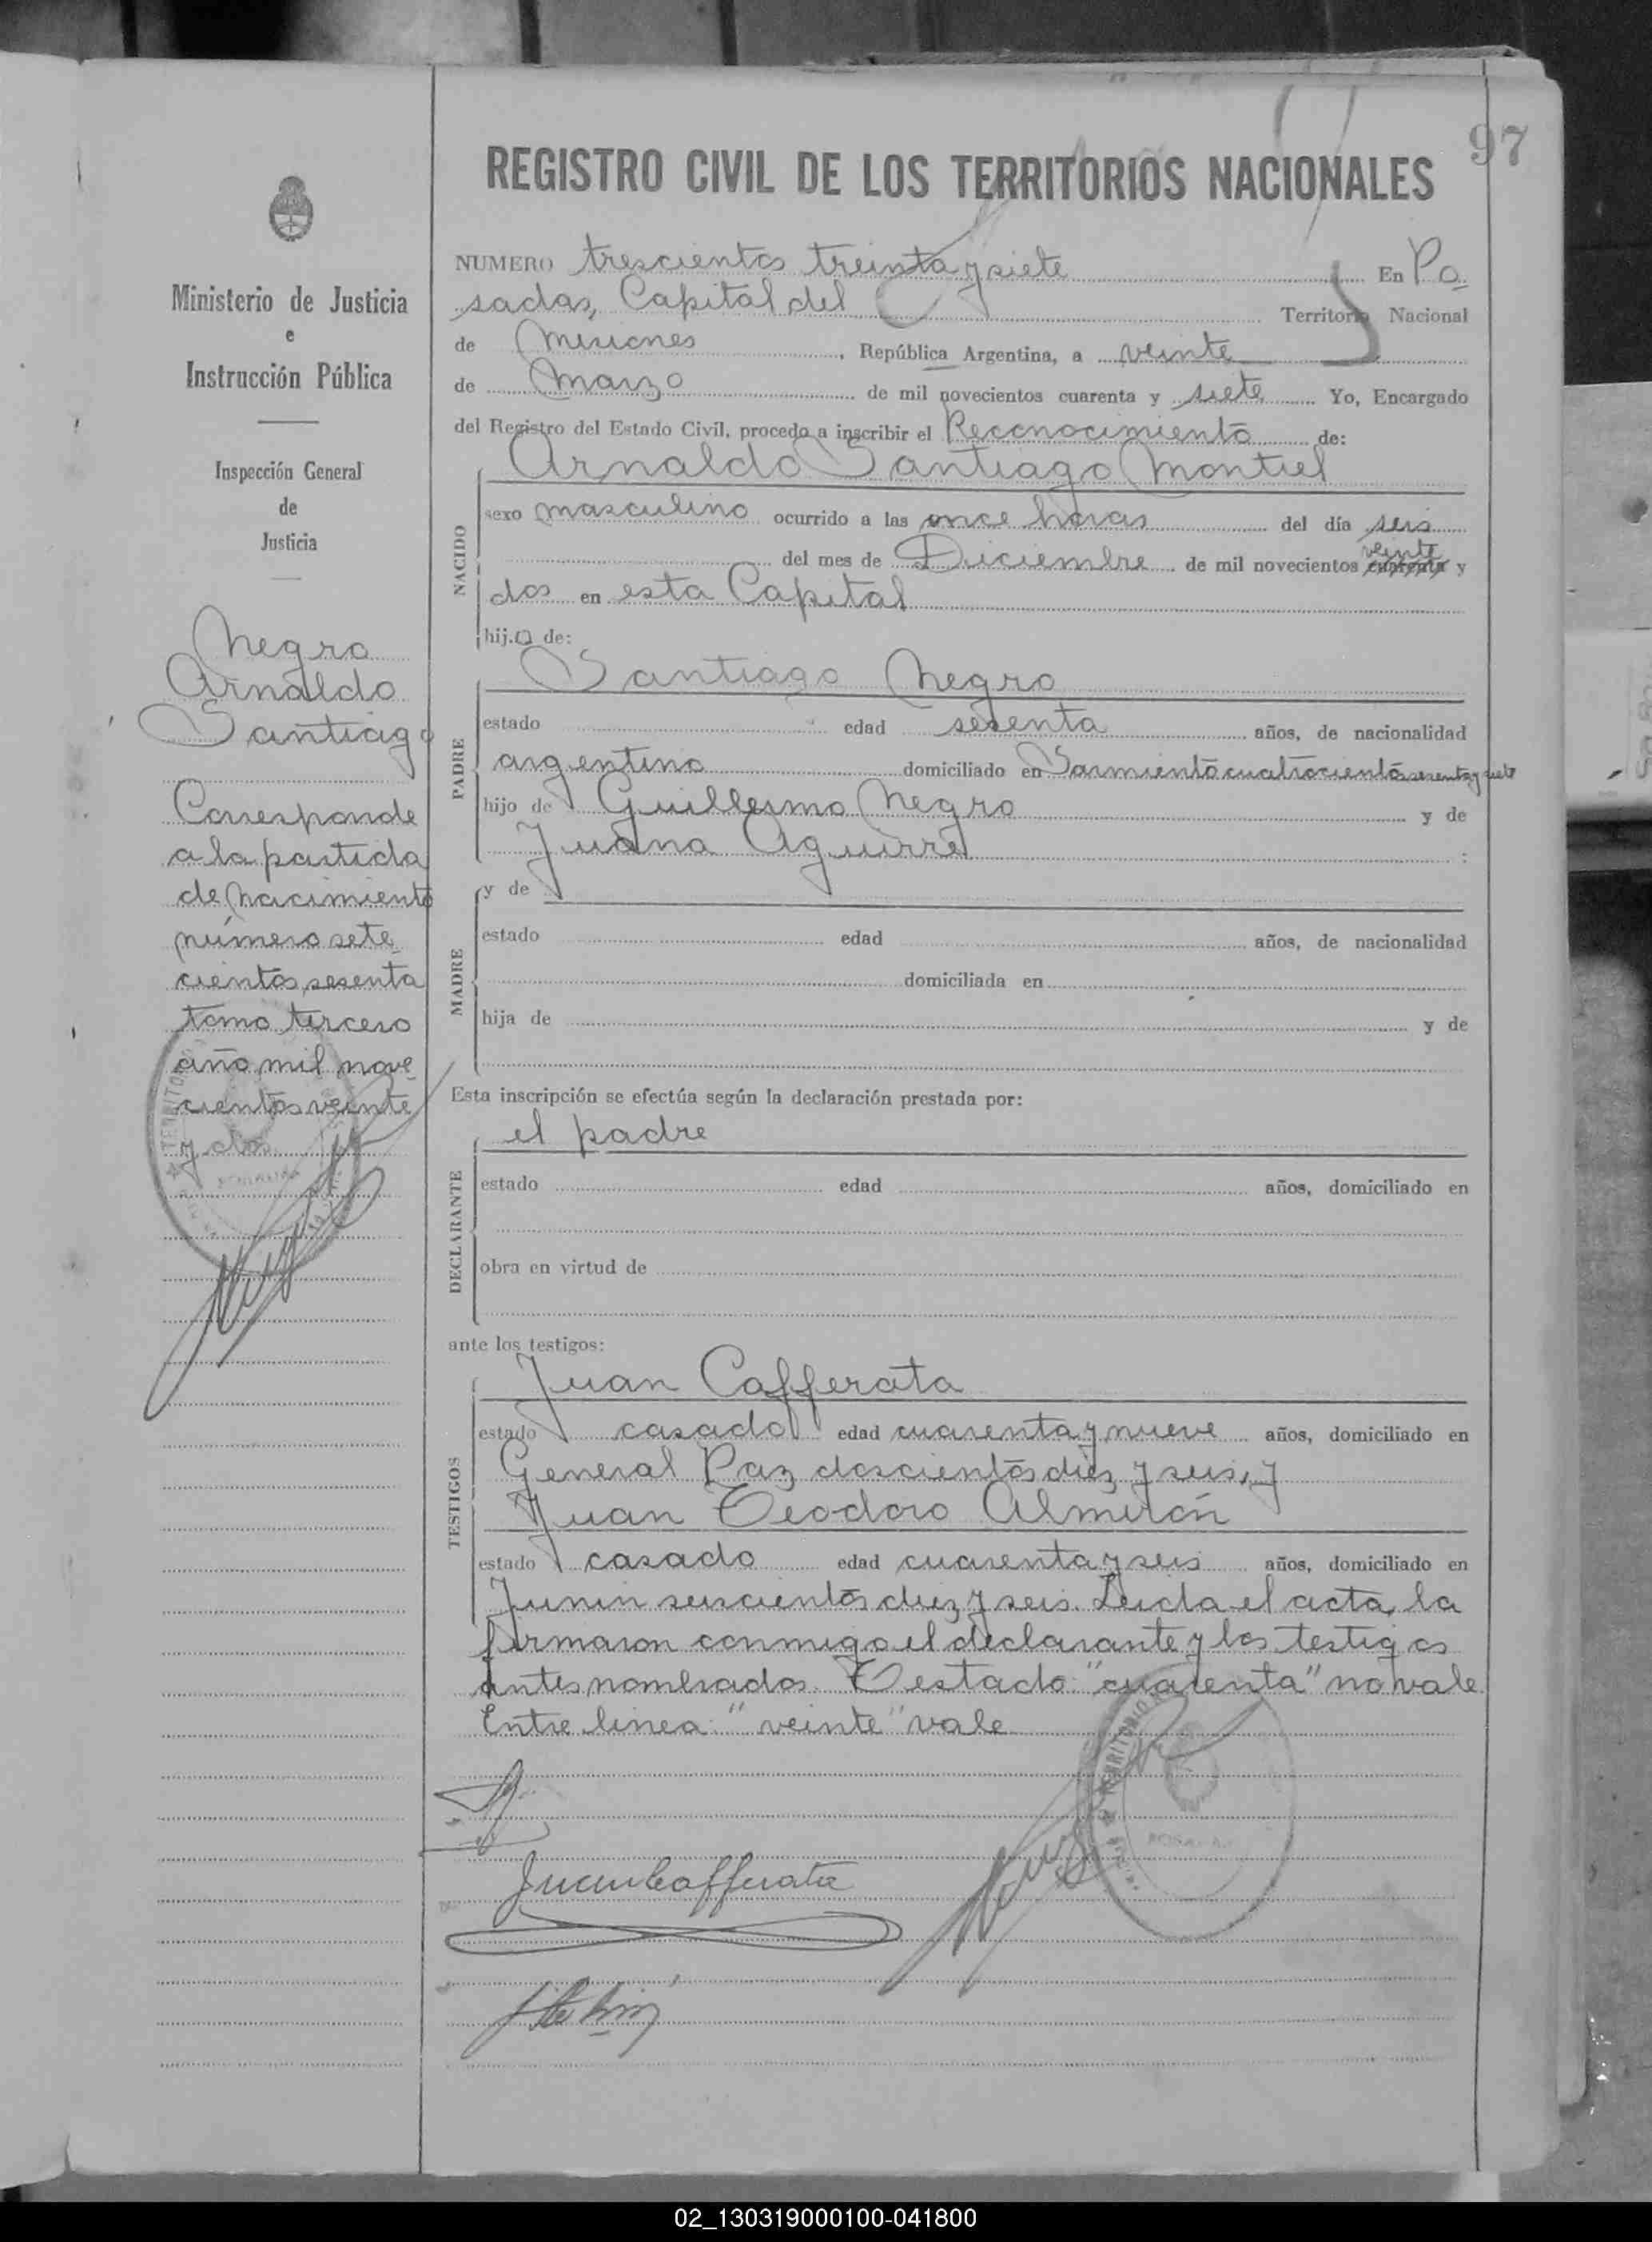 97
REGISTRO CIVIL DE LOS TERRITORIOS NACIONALES
Ministerio de Justicia
e
Instrucción Pública
Inspección General
de
Justicia
Negro
Arnaldo
Santiago
Corresponde
a la partida
de nacimiento
número sete
cientos sesenta
tomo tercero
año mil nove
cientos veinte
y dos.
NUMERO trescientos treinta y siete En Po
sadas, Capital del Territorio Nacional
de Misiones, República Argentina, a veinte
de Marzo de mil novecientos cuarenta y siete Yo, Encargado
del Registro del Estado Civil, procedo a inscribir el Reconocimiento de:
Arnaldo Santiago Montiel
NACIDO
sexo masculino ocurrido a las once horas del día seis
del mes de Diciembre de mil novecientos cuarenta veinte y
dos en esta Capital
hijo de:
Santiago Negro
PADRE
estado edad sesenta años, de nacionalidad
argentino domiciliado en Sarmiento cuatrocientos sesenta y siete
hijo de Guillermo Negro y de
Juana Aguirre :
y de
MADRE
estado edad años, de nacionalidad
domiciliada en
hija de y de
Esta inscripción se efectúa según la declaración prestada por:
el padre
DECLARANTE
estado edad años, domiciliado en
obra en virtud de
ante los testigos:
Juan Cafferata
TESTIGOS
estado casado edad cuarenta y nueve años, domiciliado en
General Paz doscientos diez y seis, y
Juan Teodoro Almirón
estado casado edad cuarenta y seis años, domiciliado en
Junin seiscientos diez y seis. Leida el acta, la
firmaron conmigo el declarante y los testigos
antes nombrados. Testado: "cuarenta" no vale
Entre linea: "veinte" vale
Juan Cafferata
02_130319000100-041800